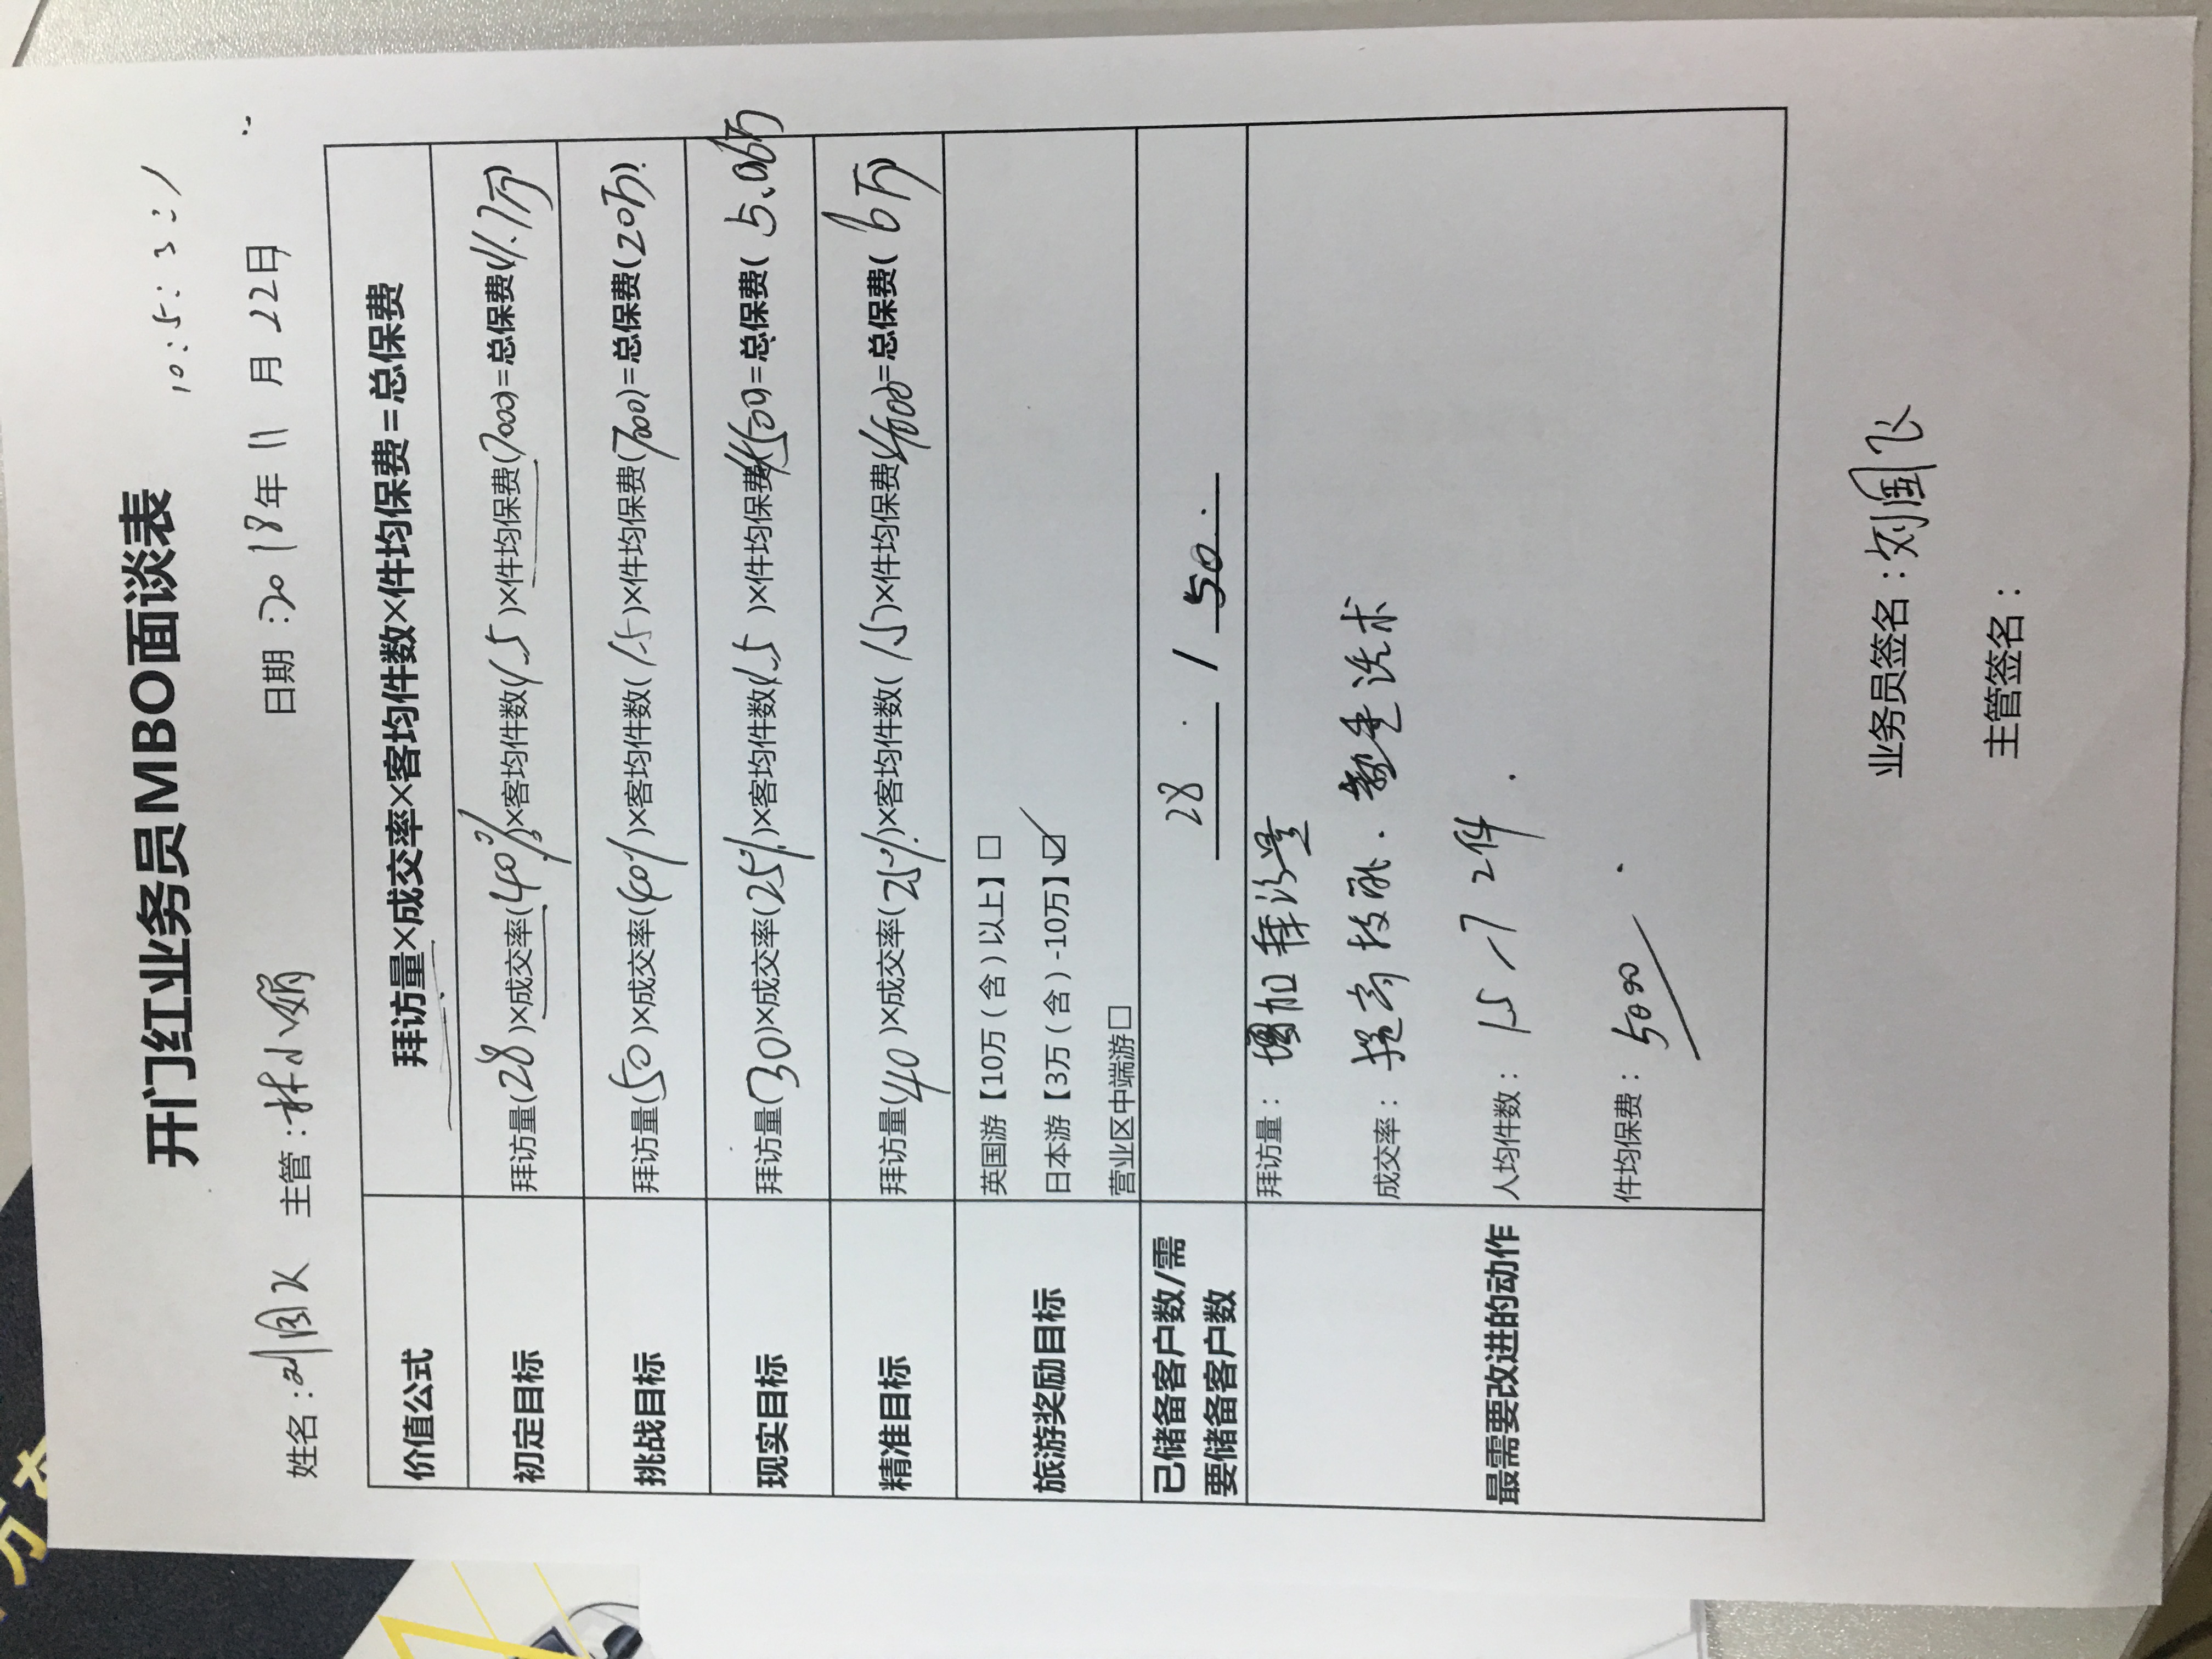 开门红业务员MBO面谈表
10:5:3:1
姓名:刘国飞 主管:林小娟 日期:2018年11月22日
价值公式 拜访量×成交率×客均件数×件均保费=总保费
初定目标 拜访量(28)×成交率(40%)×客均件数(1.5)×件均保费(7000)=总保费(11.7万)
挑战目标 拜访量(50)×成交率(40%)×客均件数(1.5)×件均保费(7000)=总保费(20万)
现实目标 拜访量(30)×成交率(25%)×客均件数(1.5)×件均保费(4500)=总保费(5.06万)
精准目标 拜访量(40)×成交率(25%)×客均件数(1.5)×件均保费(4000)=总保费(6万)
旅游奖励目标
英国游【10万(含)以上】□
日本游【3万(含)-10万】☑
营业区中端游□
已储备客户数/需要储备客户数 28 / 50
最需要改进的动作
拜访量: 增加拜访量
成交率: 提高技能.数量话术
人均件数: 1.5→2件
件均保费: 5000
业务员签名:刘国飞
主管签名: